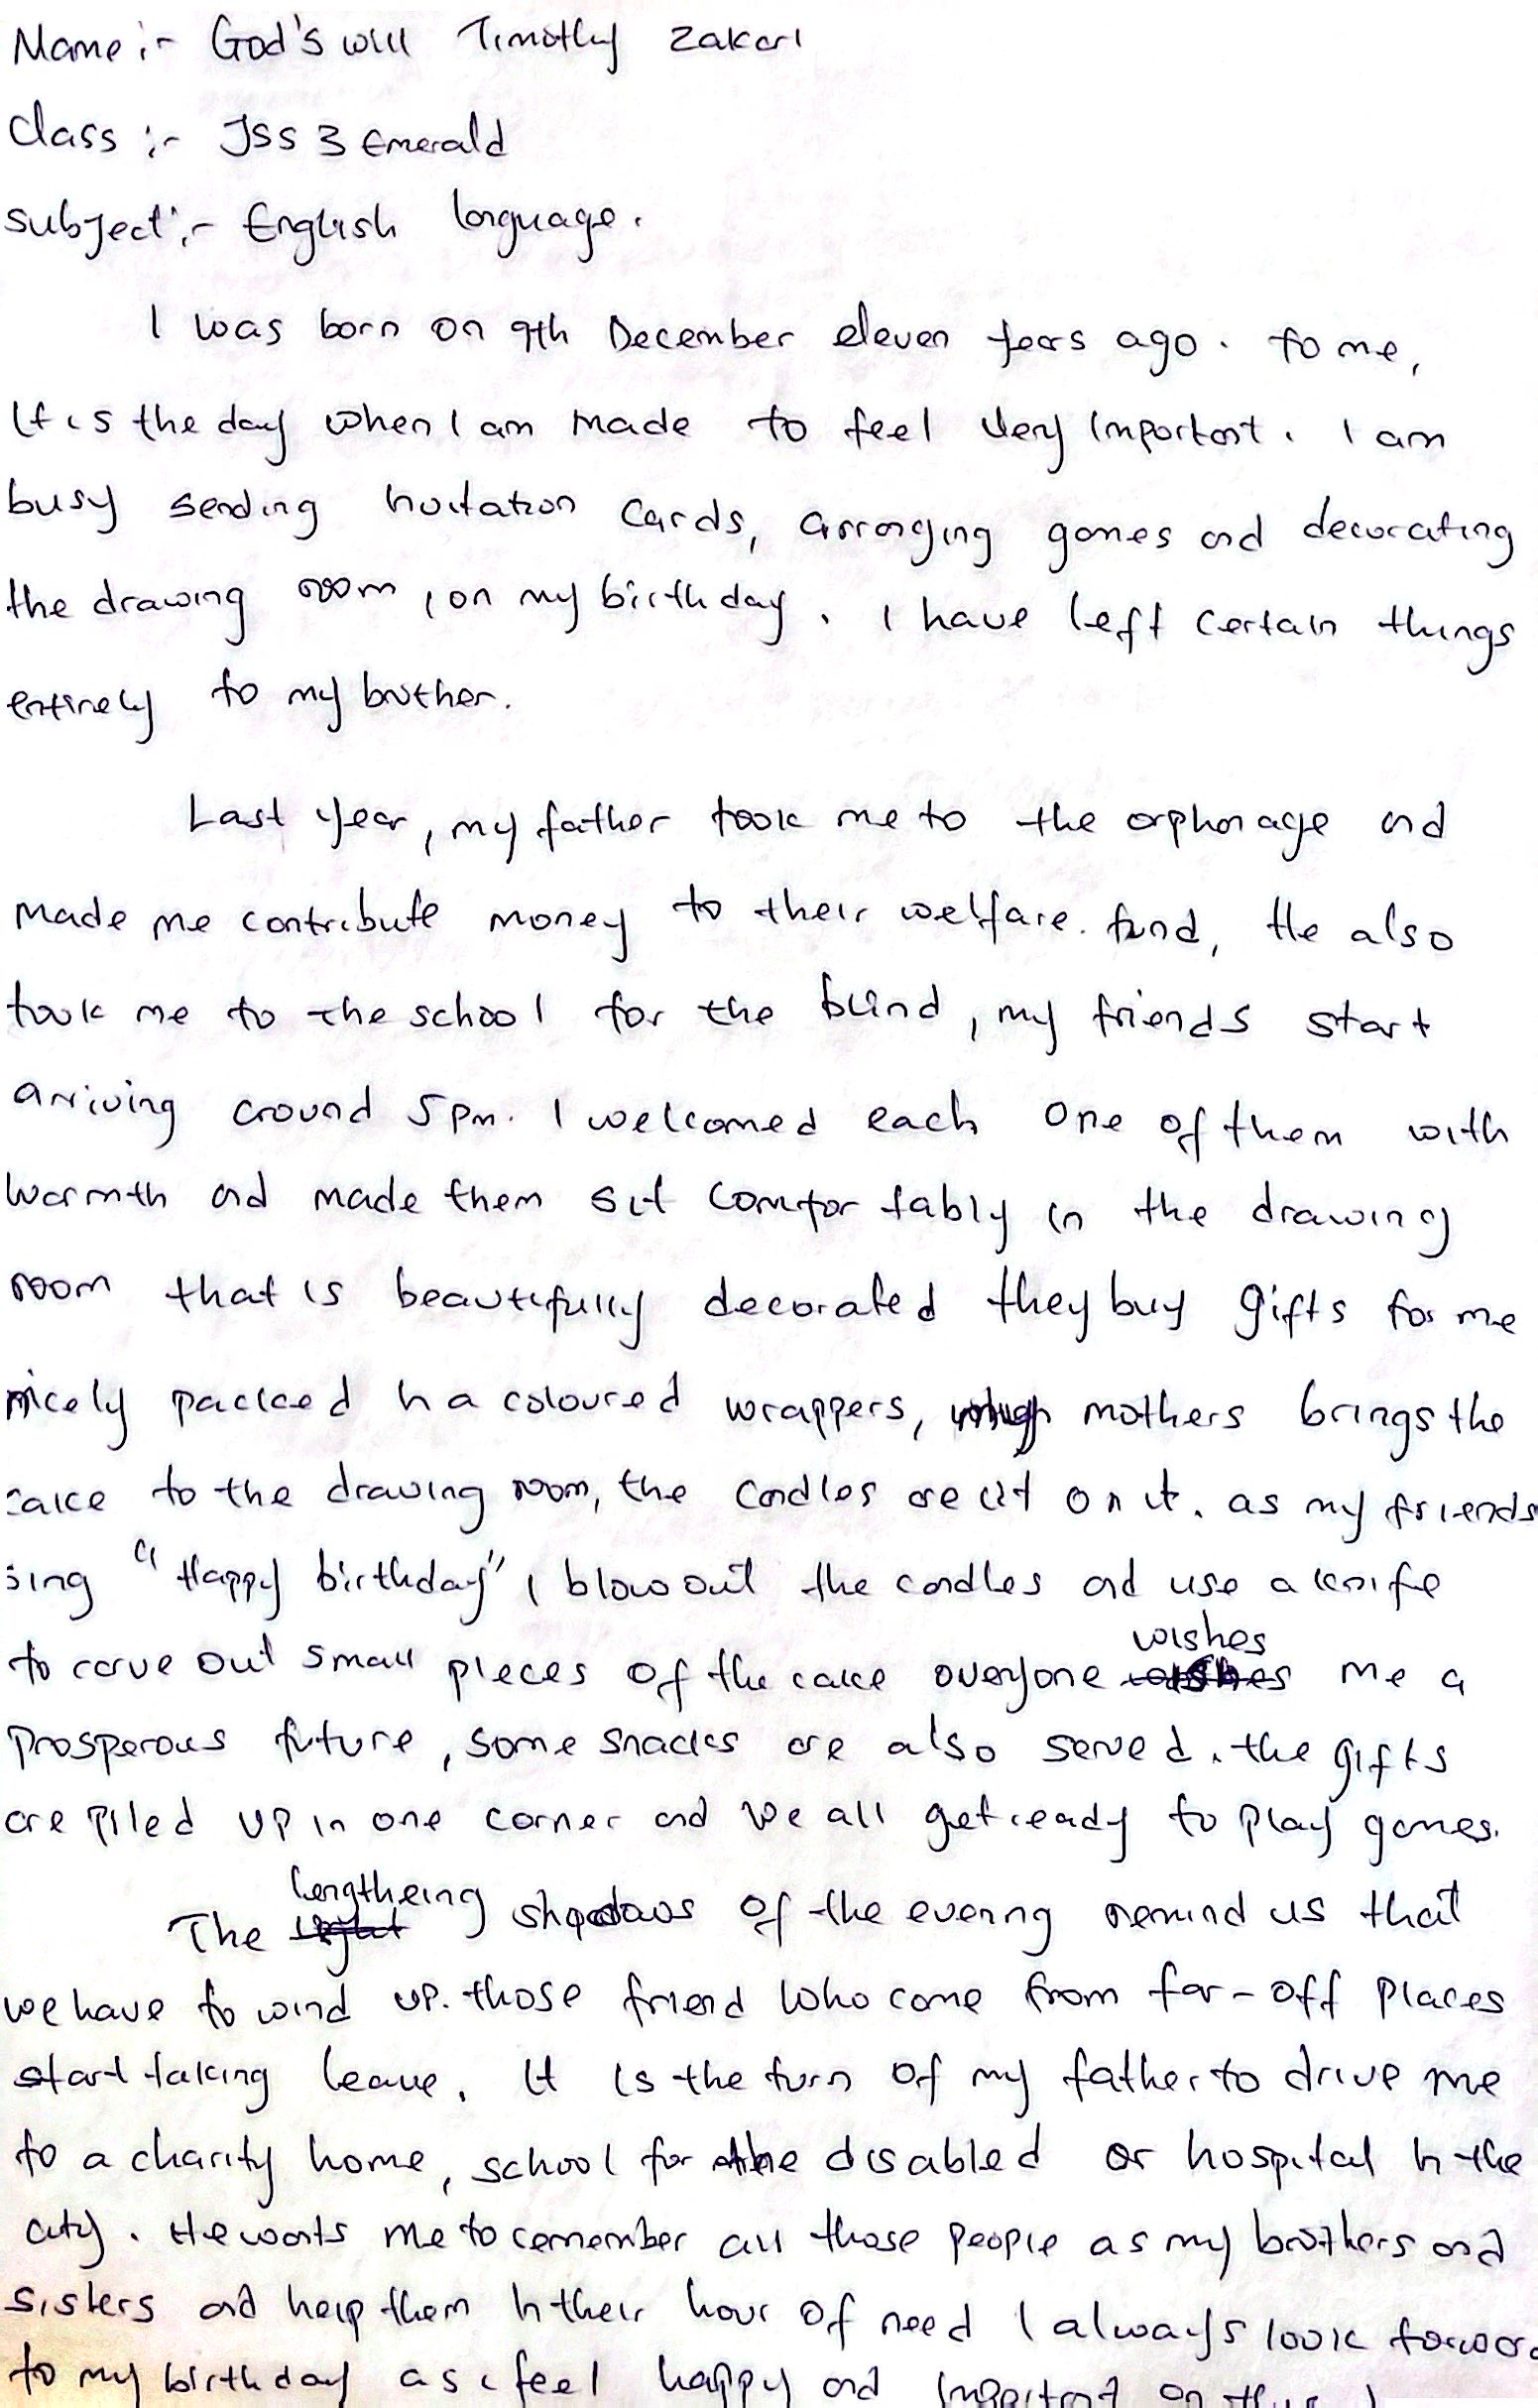 Name :- God's will Timothy Zakari
Class :- JSS 3 Emerald
Subject :- English language.
I was born on 9th December eleven years ago. To me,
It is the day when I am made to feel very important. I am
busy sending invitation cards, arranging games and decorating
the drawing room, on my birthday. I have left certain things
entirely to my brother.
Last year, my father took me to the orphanage and
made me contribute money to their welfare. fund, He also
took me to the school for the blind, my friends start
arriving around 5pm. I welcomed each one of them with
warmth and made them sit comfortably in the drawing
room that is beautifully decorated they buy gifts for me
nicely packed in a coloured wrappers, mothers brings the
cake to the drawing room, the candles are lit on it. as my friends
sing "Happy birthday" I blow out the candles and use a knife
to carve out small pieces of the cake everyone wishes me a
prosperous future, some snacks are also served. the gifts
are piled up in one corner and we all get ready to play games.
The lengtheing shadows of the evening remind us that
we have to wind up. those friend who come from far-off places
start taking leave. It is the turn of my father to drive me
to a charity home, school for the disabled or hospital in the
city. He wants me to remember all those people as my brothers and
sisters and help them in their hour of need I always look forward
to my birthday as i feel happy and important on this